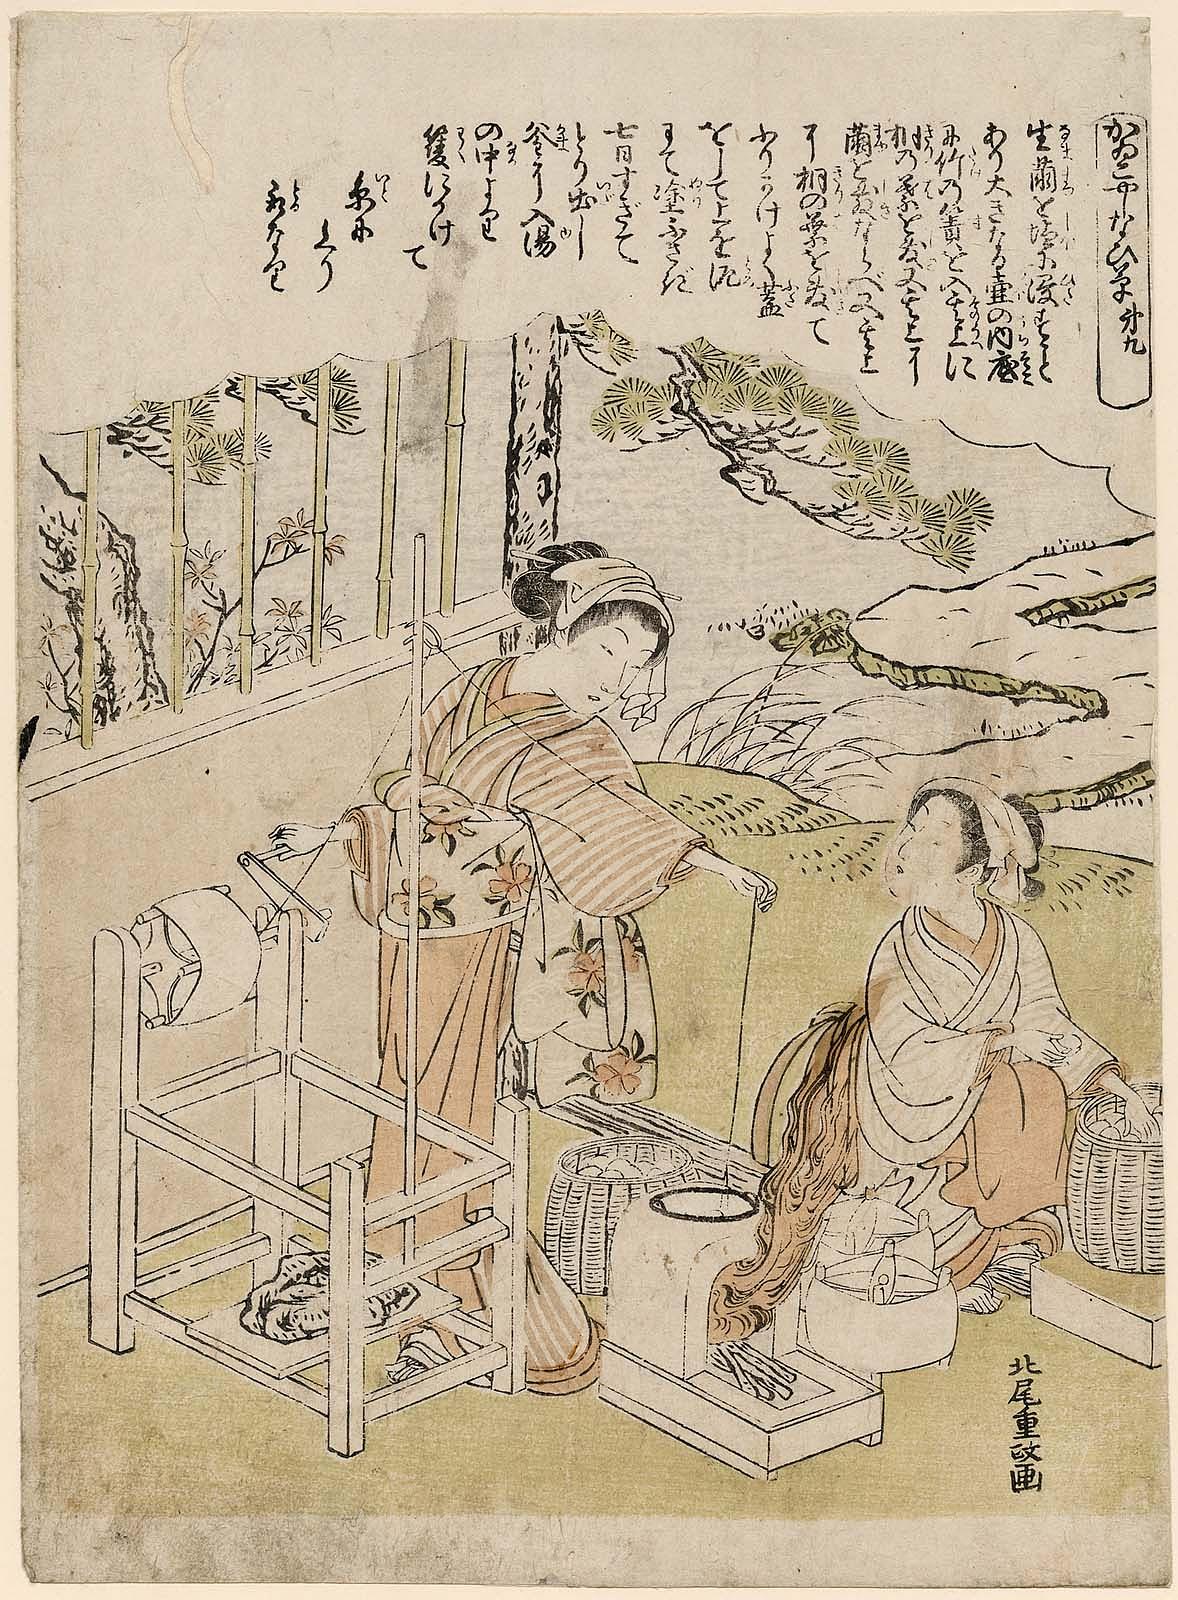 かゐこやしなひ草 第九
生繭を塩に浸すこと
あり大きなる壷の内底
に竹の簀を入其上に
桐の葉を敷又其上に
繭を敷ならべ又其上
に桐の葉を敷て
ふりかけよく蓋
をして上を泥
にて塗ふさぎ
七日すぎて
とり出し
釜に入湯
の中より
籰にかけ
て
糸に
とるなり
北尾重政画